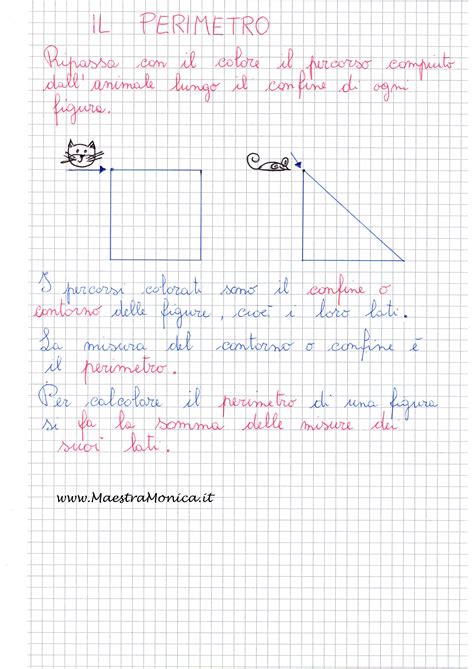 IL PERIMETRO
Ripassa con il colore il percorso compiuto
dall'animale lungo il confine di ogni
figura.
I percorsi colorati sono il confine o
contorno delle figure, cioè i loro lati.
La misura del contorno o confine è
il perimetro.
Per calcolare il perimetro di una figura
si fa la somma delle misure dei
suoi lati.
www.MaestraMonica.it